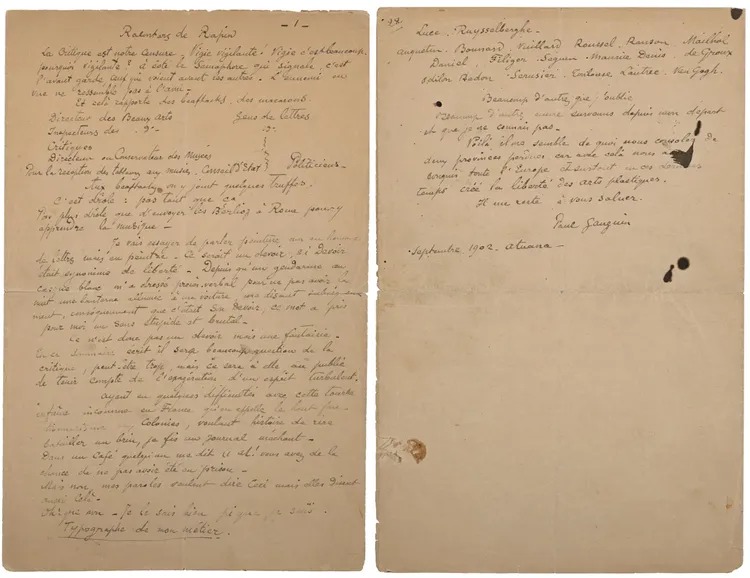 Racontars de Rapin — 1 —
La Critique est notre censure. Vigie vigilante! Vigie c'est beaucoup,
pourquoi vigilante? à côté le Sémaphore qui signale, c'est
l'avant garde ceux qui voient avant les autres. L'ennemi en
vue ne ressemble pas à l'ami.
Et celà rapporte des beafteacks, des macarons.
Directeur des Beaux arts Gens de lettres
Inspecteurs des d°- d°-
Critiques
Directeur ou Conservateur des Musées
Pour la réception des tableaux au musée, Conseil d'Etat Politiciens -
Aux beafteacks on y joint quelques Truffes.
C'est drôle : pas tant que ça
Pas plus drôle que d'envoyer les Berlioz à Rome pour y
apprendre la musique -
Je vais essayer de parler peinture, non en homme
de lettres mais en peintre. Ce serait un devoir, si Devoir
était synonyme de liberté - Depuis qu'un gendarme en
casque blanc m'a dressé procès verbal pour ne pas avoir
une lanterne à une voiture, me disant
que c'était Son Devoir, ce mot a pris
pour moi un sens stupide et brutal -
Ce n'est donc pas un devoir mais une fantaisie -
En ce sommaire écrit il sera beaucoup question de la
critique, peut-être trop, mais ce sera à elle au public
de tenir compte de l'exagération d'un esprit turbulent.
Ayant eu quelques difficultés avec cette tourbe
infâme inconnue en France qu'on appelle le haut fonctionnarisme
Colonies, voulant histoire de rire
batailler un brin, je fis un journal méchant -
Dans un Café quelqu'un me dit U Ah! vous avez de la
chance de ne pas avoir été en prison -
Mais non, mes paroles veulent dire Ceci mais elles disent
aussi Celà -
Oh! que non - Je le sais bien je suis
Typographe de mon métier.
28/
Luce - Ruysselberghe -
Anquetin - Bonnard Vuillard Roussel - Ranson - Mailhiol
Daniel - Filiger - Séguin - Maurice Denis - de Groux
Odilon Redon - Sérusier, Toulouse Lautrec - Van Gogh.
Beaucoup d'autres que j'oublie
Beaucoup d'autres encore survenus depuis mon départ
et que je ne connais pas -
Voilà, il me semble de quoi nous consoler de
deux provinces perdues car avec celà nous avons
conquis toute l'Europe et surtout en ces derniers
temps créé la liberté des arts plastiques.
Il me reste à vous saluer.
Paul Gauguin
- Septembre 1902. Atuana -